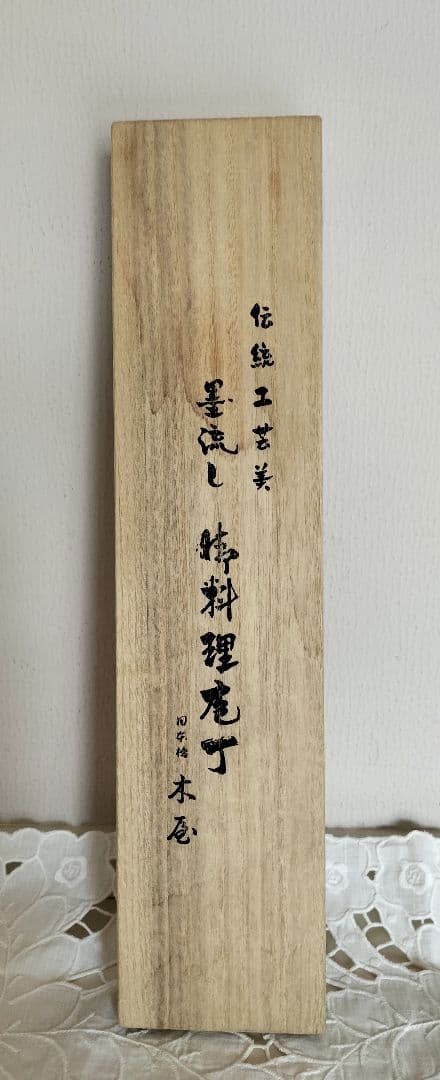 伝統工芸美
墨流し 御料理庖丁
日本橋 木屋